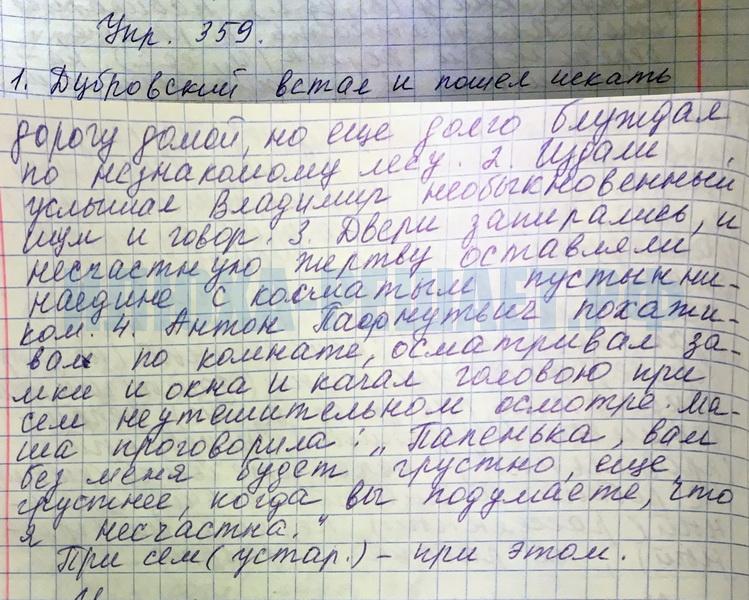 Упр. 359.
1. Дубровский встал и пошел искать
дорогу домой, но еще долго блуждал
по незнакомому лесу. 2. Издали
услышал Владимир необыкновенный
шум и говор. 3. Двери запирались, и
несчастную жертву оставляли
наедине с косматым пустынни-
ком. 4. Антон Пафнутьич похажи-
вал по комнате, осматривал за-
мки и окна и качал головою при
сем неутешительном осмотре. Ма-
ша проговорила: „Папенька, вам
без меня будет грустно, еще
грустнее, когда вы подумаете, что
я несчастна.“
При сем (устар.) – при этом.